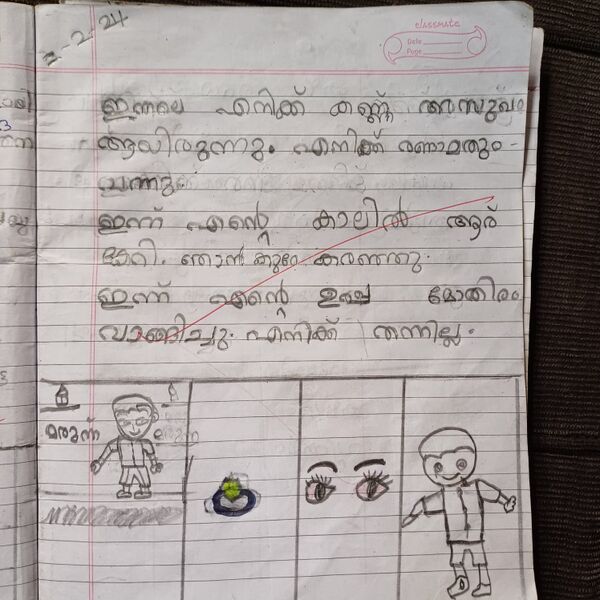 2-2-24
classmate
Date
Page
ഇന്നലെ എനിക്ക് കണ്ണ് അസുഖം
ആയിരുന്നും. എനിക്ക് രണാമതും-
വന്നു
ഇന്ന് എന്റെ കാലിൽ ആര്
കേറി. ഞാൻ കുറേ കരഞ്ഞു.
ഇന്ന് എന്റെ ഉമ്മ മോതിരം
വാങ്ങിച്ചു. എനിക്ക് തന്നില്ല.
മരുന്ന്